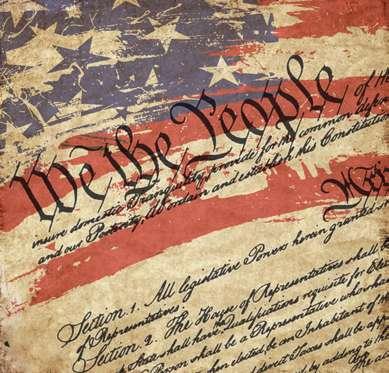 We the People of the
insure domestic Tranquility, provide for the common defen
and our Posterity, do ordain and establish this Constitution
Section. 1. All legislative Powers herein granted
of Representatives.
Section. 2. The House of Representatives shall
State shall have the Qualifications requisite for Elec
Person shall be a Representative who shall
when elected, be an Inhabitant of
direct Taxes shall be ap
by adding to